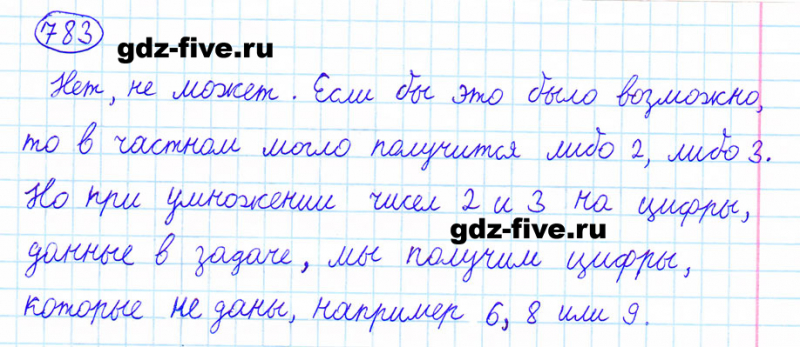 783
gdz-five.ru
Нет, не может. Если бы это было возможно,
то в частном могло получится либо 2, либо 3.
Но при умножении чисел 2 и 3 на цифры,
gdz-five.ru
данные в задаче, мы получим цифры,
которые не даны, например 6, 8 или 9.